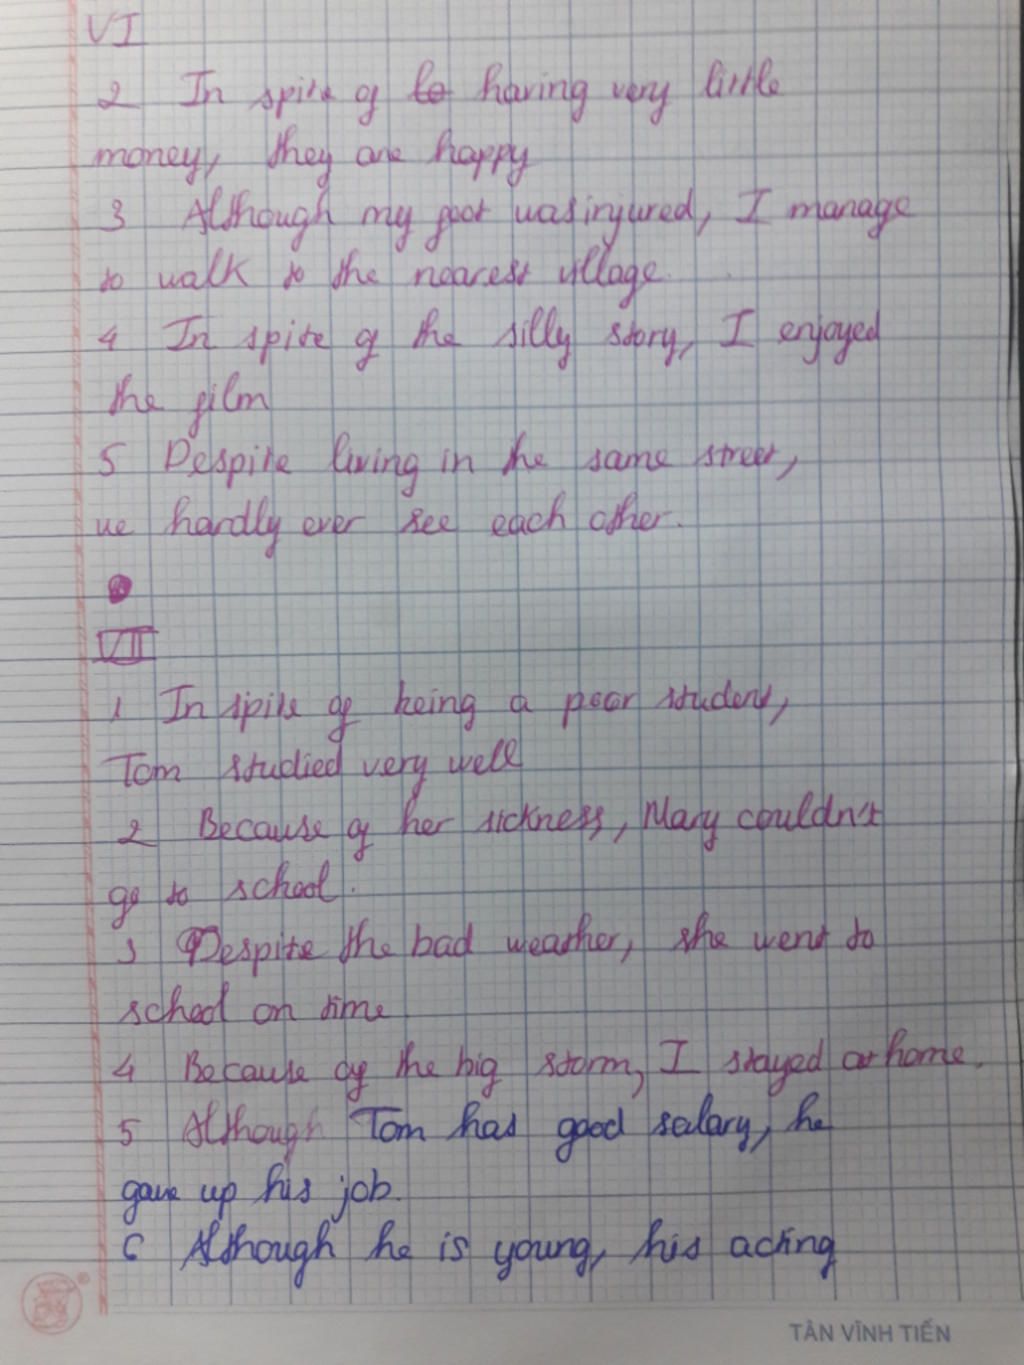 VI
2 In spite of having very little
money, they are happy
3 Although my foot was injured, I manage
to walk to the nearest village.
4 In spite of the silly story, I enjoyed
the film
5 Despite living in the same street,
we hardly ever see each other.
VII
1 In spite of being a poor student,
Tom studied very well
2 Because of her sickness, Mary couldn't
go to school.
3 Despite the bad weather, she went to
school on time
4 Because of the big storm, I stayed at home.
5 Although Tom has good salary, he
gave up his job.
6 Although he is young, his acting
TÂN VĨNH TIẾN